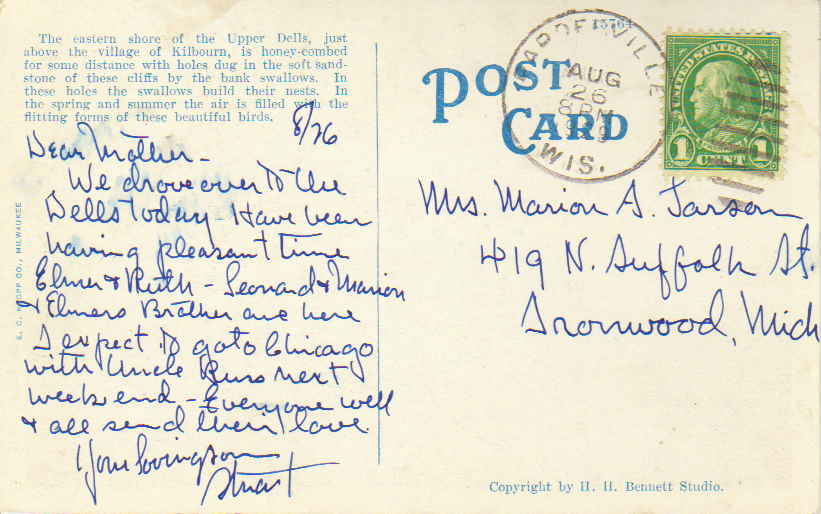 The eastern shore of the Upper Dells, just
above the village of Kilbourn, is honey-combed
for some distance with holes dug in the soft sand-
stone of these cliffs by the bank swallows. In
these holes the swallows build their nests. In
the spring and summer the air is filled with the
flitting forms of these beautiful birds.
8/26
Dear Mother -
We drove over to the
Dells today. Have been
having pleasant time
Elmer & Ruth - Leonard & Marion
& Elmers Brother are here
I expect to go to Chicago
with Uncle Russ next
week end - Everyone well
& all send their love.
Your loving son
Stuart
E. C. KROPP CO., MILWAUKEE
15764
POST
CARD
PARDEEVILLE
AUG
26
8 PM
WIS.
UNITED STATES POSTAGE
1 CENT 1
Mrs. Marion A. Larson
419 N. Suffolk St.
Ironwood, Mich
Copyright by H. H. Bennett Studio.